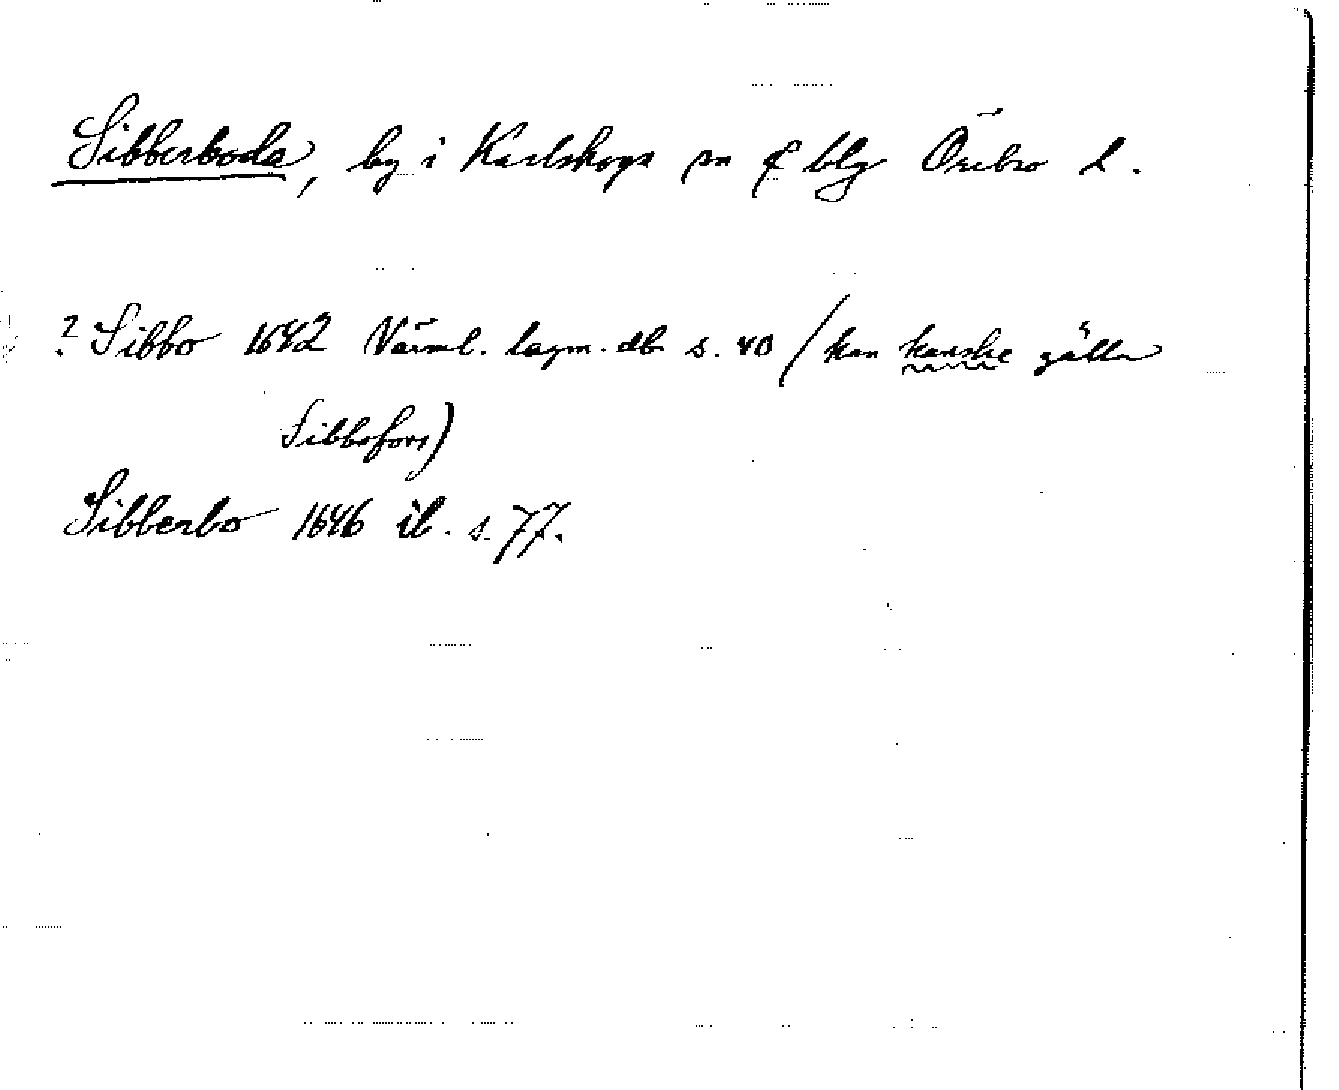 Sibberboda, by i Karlskoga sn & blg Örebro l.
? Sibbo 1642 Värml. lagm. db s. 40 (kan kanske gälla
Sibbofors)
Sibberbo 1646 ib. s. 77.